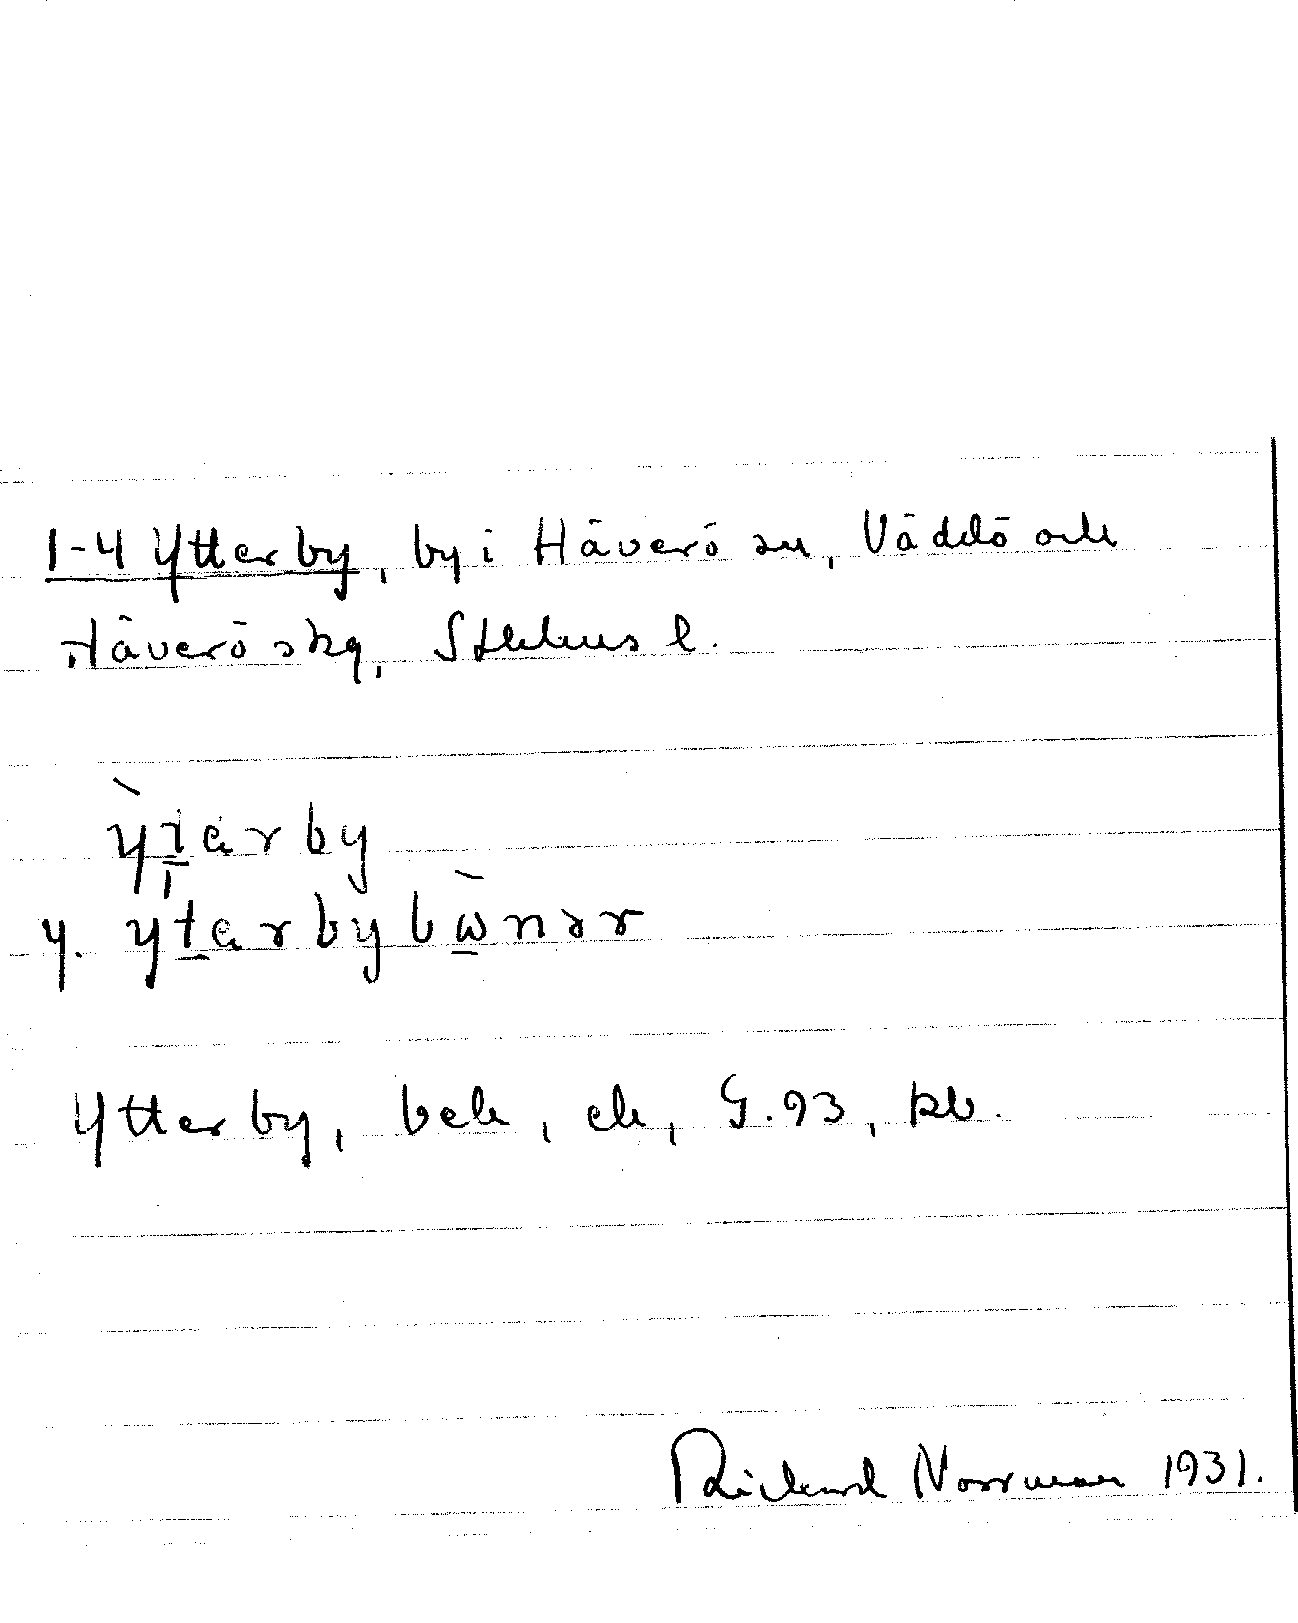 1-4 Ytterby, by i Häverö sn, Väddö och
Häverö skg, Sthlms l.
ỳt̲ɐrby
y. yt̲ɐrbybὼ̲nər
Ytterby, bek, ek, G.93, kb.
Rickard Norrman 1931.